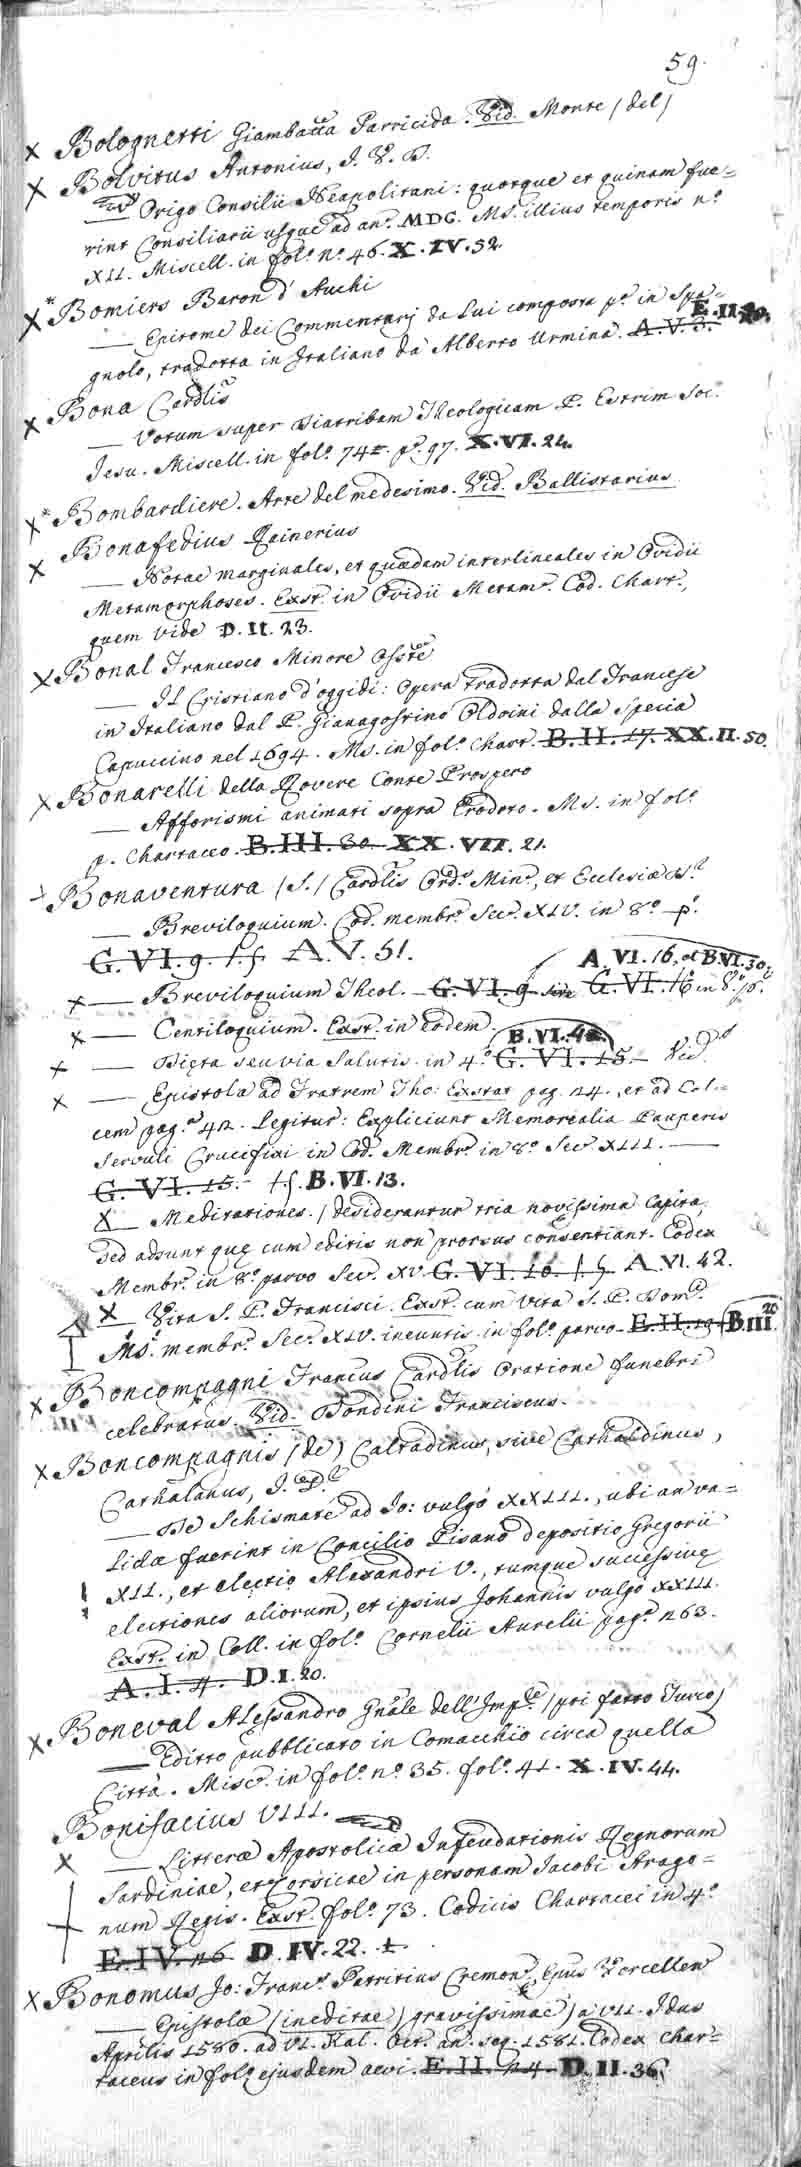 59.
x Bolognetti Giambatta Parricida. Vid. Monte (del)
x Bolvitus Antonius, J. V. D.
— Origo Consilii Neapolitani: quotque et quinam fue=
rint Consiliarii usque ad an.º MDC. Ms. illius temporis nº
XII. Miscell. in fol.º nº 46. X. IV. 52.
x* Bomiers Baron d'Auchi
— Epitome dei Commentarj da Lui composta pª in Spa=
gnolo, tradotta in Italiano da Alberto Urmina. A. V. 3. E. II. 20.
x Bona Cardlis
— Votum super Diatribam Theologicam P. Estrim Soc.
Jesu. Miscell. in fol.º 74 pº. 97. X. VI. 24.
x* Bombardiere. Arte del medesimo. Vid. Ballistarius
x Bonafedius Rainerius
— Notae marginales, et quædam interlineales in Ovidii
Metamorphoses. Exst. in Ovidii Metam. Cod. Chart.,
quem vide D. II. 23.
x Bonal Francesco Minore Osste
— Il Cristiano d'oggidì: Opera tradotta dal Francese
in Italiano dal P. Gianagostino Oldoini dalla Specia
Capuccino nel 1694. Ms. in fol.º Chart. B. II. 17. XX. II. 50.
x Bonarelli della Rovere Conte Prospero
— Afforismi animati sopra Erodoto. Ms. in fol.º
p. Chartaceo. B. III. 30. XX. VII. 21.
Bonaventura (S.) Cardlis Ord.s Min., et Ecclesiæ Dr
— Breviloquium. Cod. membr. Sec. XIV. in 8.º p.
G. VI. 9. A. V. 51.
x — Breviloquium Theol. G. VI. 9 sive G. VI. 16 in 8.º p. A. VI. 16, et B. VI. 30.
x — Centiloquium. Exst. in eodem.
x — Diæta seu via Salutis in 4.º G. VI. 15. B. VI. 4
x — Epistola ad Fratrem Tho: Exstat pag. 24., et ad Cal=
cem pag. 42. Legitur: Expliciunt Memorialia Pauperis
Servuli Crucifixi in Cod. Membr. in 8.º Sec. XIII. —
G. VI. 15. B. VI. 13.
x — Meditationes. (desiderantur tria novissima Capita,
sed adsunt quę cum editis non prorsus consentiant. Codex
Membr. in 8.º parvo Sec. XV. G. VI. 10. A. VI. 42.
x — Vita S. P. Francisci. Exst. cum Vita S. P. Dom.
Ms. membr. Sec. XIV. ineuntis in fol.º parvo E. II. 19 B. III. 20
x Boncompagni Francus Cardlis Oratione funebri
celebratus. Vid. Bondini Franciscus.
x Boncompagnis (de) Caltadinus, sive Cathaldinus,
Cathalanus, J. D.
— De Schismate ad Jo: vulgo XXIII., ubi an va=
lida fuerint in Concilio Pisano depositio Gregorii
XII., et electio Alexandri V., tumque successivę
electiones aliorum, et ipsius Johannis vulgo XXIII.
Exst. in Coll. in fol.º Cornelii Aurelii pag. 263.
A. I. 4. D. I. 20.
x Boneval Alessandro Gnãle dell'Imple (poi fatto Turco)
— Editto pubblicato in Comacchio circa quella
Città. Misc. in fol.º nº 35. fol.º 41. X. IV. 44.
Bonifacius VIII.
x — Litteræ Apostolicæ Infeudationis Regnorum
Sardiniae, et Corsicae in personam Jacobi Arago=
num Regis. Exst. fol.º 73. Codicis Chartacei in 4.º
E. IV. 26 D. IV. 22.
x Bonomus Jo: Franc. Patritius Cremon., Epus Vercellen
— Epistolæ (ineditae) gravissimae) a VII. Idus
Aprilis 1580. ad VI. Kal. Oct. an. seq. 1581. Codex Char=
taceus in fol. ejusdem aevi. E. II. 24. D. II. 36.